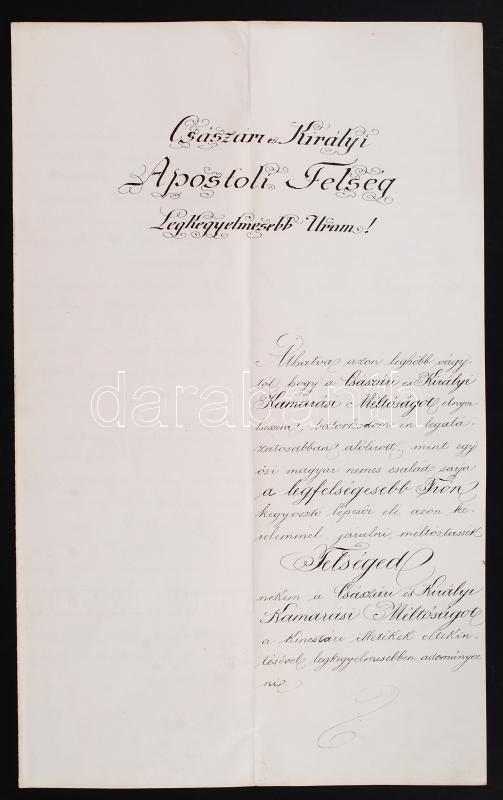 Császári és Királyi
Apostoli Felség
Legkegyelmesebb Uram!
Áthatva azon leghőbb vágy-
tól hogy a Császári és Királyi
Kamarási Méltóságot elnyer-
hessem, bátorkodom én legalá-
zatosabban alólírott, mint egy
ősi magyar nemes család sarja
a legfelségesebb Trón
kegyosztó lépcsői elé azon ké-
relemmel járulni, méltóztassék
Felséged
nekem a Császári és Királyi
Kamarási Méltóságot
a kincstári illetékek eltekin-
tésével legkegyelmesebben adományoz-
ni.
darabanth